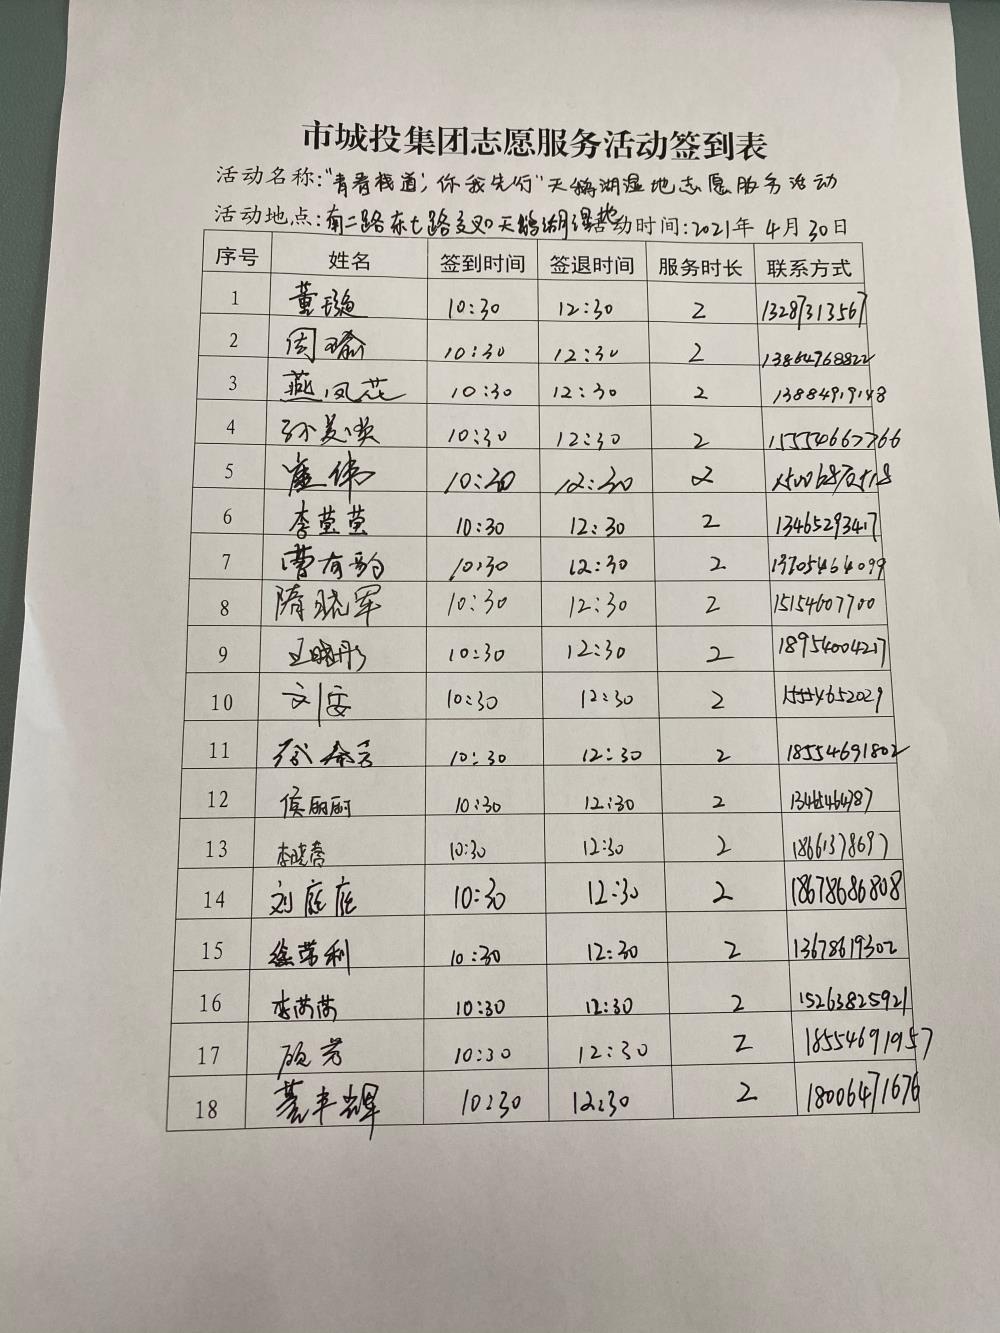 市城投集团志愿服务活动签到表
活动名称:"青春栈道,你我先行"天鹅湖湿地志愿服务活动
活动地点:南二路东七路交叉天鹅湖湿地 活动时间:2021年4月30日
序号 姓名 签到时间 签退时间 服务时长 联系方式
1 董璇 10:30 12:30 2 13287313567
2 周瑜 10:30 12:30 2 13864768822
3 燕凤花 10:30 12:30 2 13884919148
4 孙美焕 10:30 12:30 2 15554667766
5 崔伟 10:30 12:30 2
6 李莹莹 10:30 12:30 2 13465293417
7 曹有韵 10:30 12:30 2 13705464099
8 隋晓军 10:30 12:30 2 15154607700
9 王晓彤 10:30 12:30 2 18954004217
10 刘委 10:30 12:30 2 15554652029
11 10:30 12:30 2 18554691802
12 侯丽丽 10:30 12:30 2
13 李晓蓉 10:30 12:30 2 18661378697
14 刘庭庭 10:30 12:30 2 18678686808
15 徐荣利 10:30 12:30 2 13678619302
16 李芮芮 10:30 12:30 2 15263825921
17 顾芳 10:30 12:30 2 18554691957
18 綦丰辉 10:30 12:30 2 18006471676